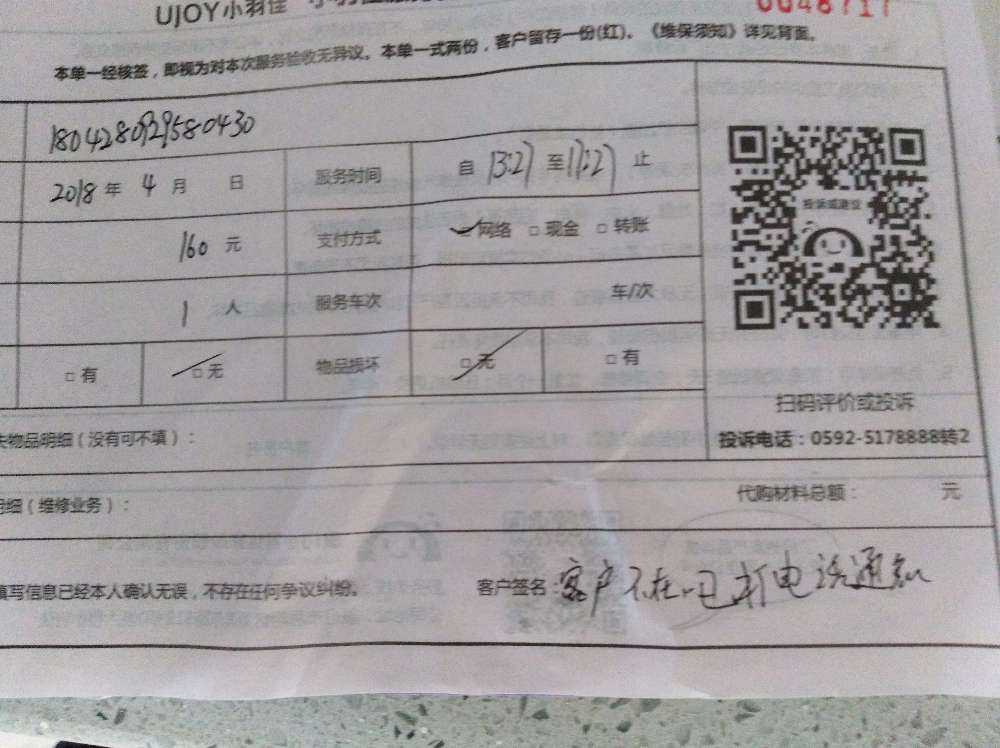 UJOY小羽佳
0048717
本单一经核签，即视为对本次服务验收无异议。本单一式两份，客户留存一份(红)。《维保须知》详见背面。
1804280929580430
2018年 4月 日 服务时间 自 13:27 至 17:27 止
160 元 支付方式 ☑网络 □现金 □转账
1 人 服务车次 车/次
□有 ☑无 物品损坏 ☑无 □有
投诉或建议
扫码评价或投诉
投诉电话：0592-5178888转2
失物品明细（没有可不填）：
明细（维修业务）： 代购材料总额： 元
填写信息已经本人确认无误，不存在任何争议纠纷。 客户签名：客户不在 电话通知